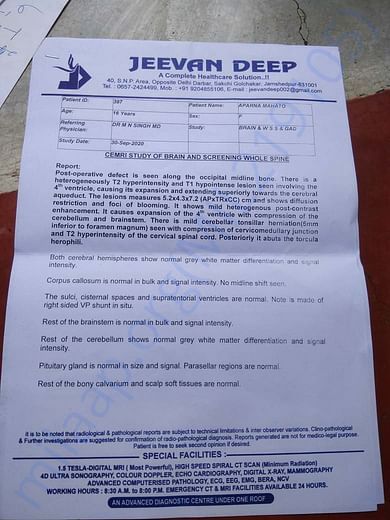 JEEVAN DEEP
A Complete Healthcare Solution..!!
40, S.N.P. Area, Opposite Delhi Darbar, Sakchi Golchakar, Jamshedpur-831001
Tel. : 0657-2424499, Mob. : +91 9204855106, E-mail : jeevandeep002@gmail.com
Patient ID: 387 Patient Name: APARNA MAHATO
Age: 16 Years Sex: F
Referring Physician: DR M N SINGH MD Study: BRAIN & W S S & GAD
Study Date: 30-Sep-2020
CEMRI STUDY OF BRAIN AND SCREENING WHOLE SPINE
Report:
Post-operative defect is seen along the occipital midline bone. There is a
heterogeneously T2 hyperintensity and T1 hypointense lesion seen involving the
4th ventricle, causing its expansion and extending superiorly towards the cerebral
aqueduct. The lesions measures 5.2x4.3x7.2 (APxTRxCC) cm and shows diffusion
restriction and foci of blooming. It shows mild heterogenous post-contrast
enhancement. It causes expansion of the 4th ventricle with compression of the
cerebellum and brainstem. There is mild cerebellar tonsillar herniation(5mm
inferior to foramen magnum) seen with compression of cervicomedullary junction
and T2 hyperintensity of the cervical spinal cord. Posteriorly it abuts the torcula
herophili.
Both cerebral hemispheres show normal grey white matter differentiation and signal
intensity.
Corpus callosum is normal in bulk and signal intensity. No midline shift seen.
The sulci, cisternal spaces and supratentorial ventricles are normal. Note is made of
right sided VP shunt in situ.
Rest of the brainstem is normal in bulk and signal intensity.
Rest of the cerebellum shows normal grey white matter differentiation and signal
intensity.
Pituitary gland is normal in size and signal. Parasellar regions are normal.
Rest of the bony calvarium and scalp soft tissues are normal.
it is to be noted that radiological & pathological reports are subject to technical limitations & inter observer variations. Clino-pathological
& Further investigations are suggested for confirmation of radio-pathological diagnosis. Reports generated are not for medico-legal purpose.
Patient is free to seek second opinion if desired.
SPECIAL FACILITIES :
1.5 TESLA-DIGITAL MRI ( Most Powerful), HIGH SPEED SPIRAL CT SCAN (Minimum Radiation)
4D ULTRA SONOGRAPHY, COLOUR DOPPLER, ECHO CARDIOGRAPHY, DIGITAL X-RAY, MAMMOGRAPHY
ADVANCED COMPUTERISED PATHOLOGY, ECG, EEG, EMG, BERA, NCV
WORKING HOURS : 8:30 A.M. to 8:00 P.M. EMERGENCY CT & MRI FACILITIES AVAILABLE 24 HOURS.
AN ADVANCED DIAGNOSTIC CENTRE UNDER ONE ROOF